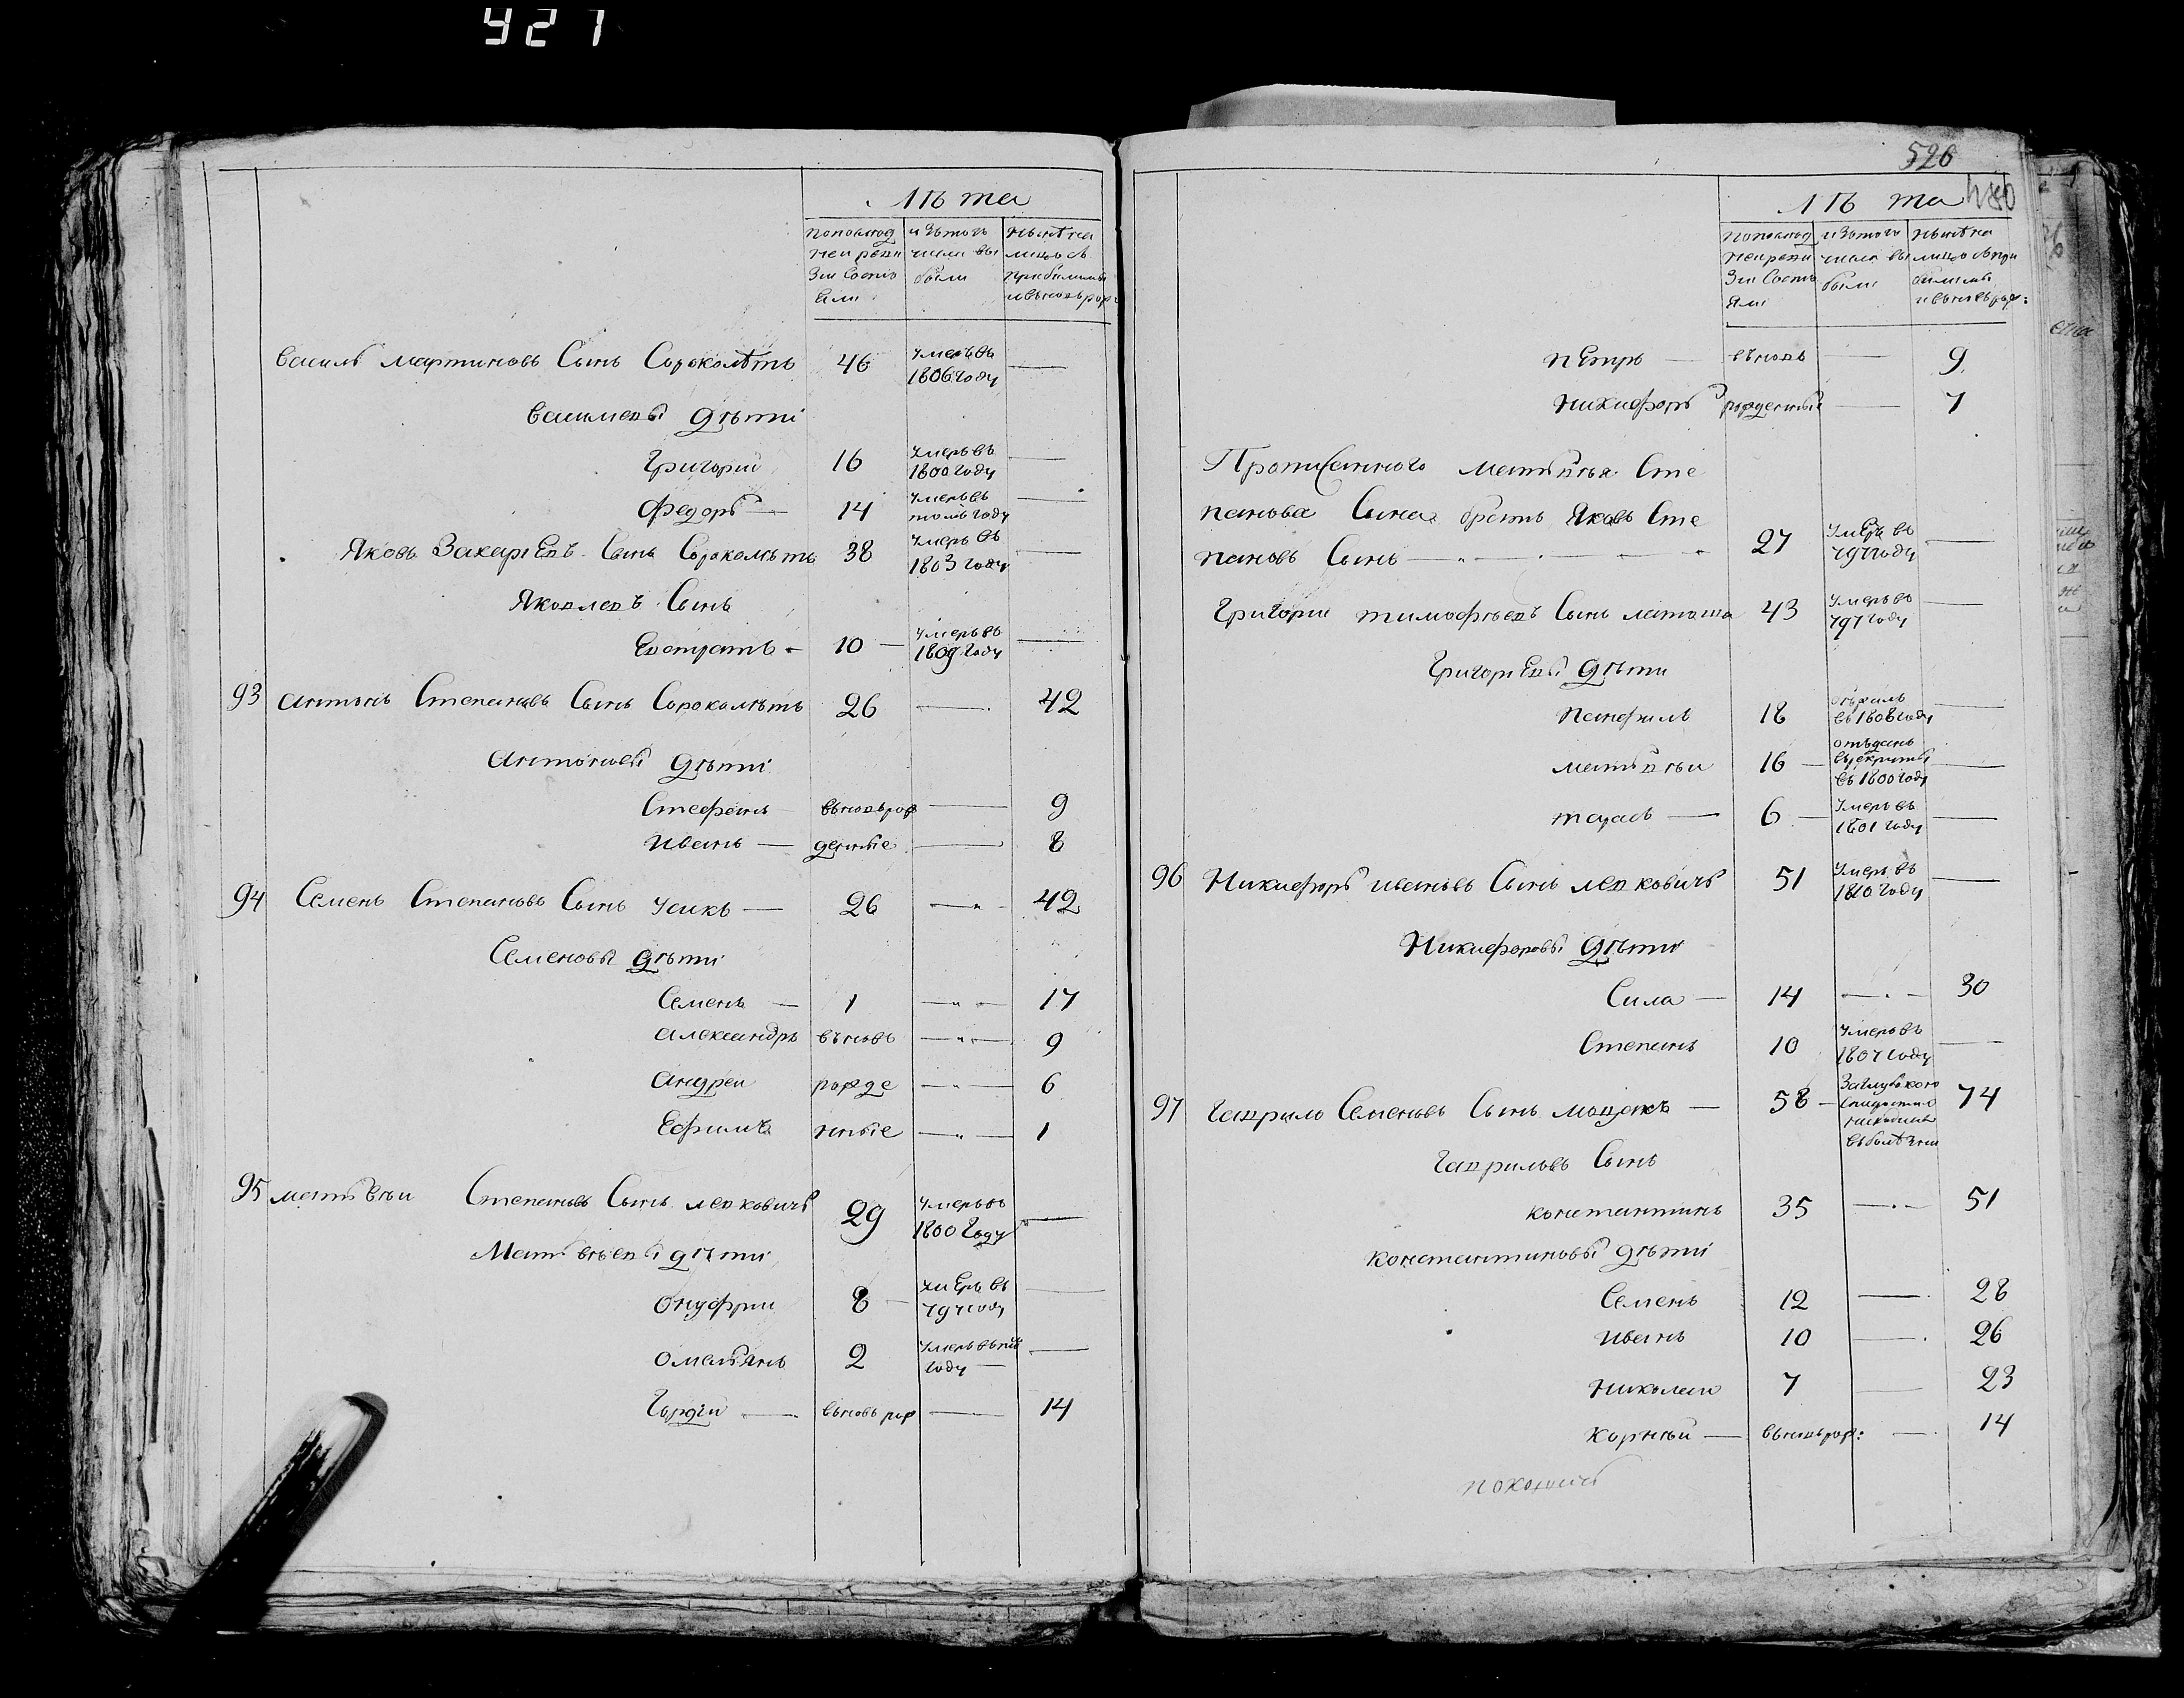 927
Лѣта
попослѣд ней реви зіи Состо яли
изътого числа вы были
нынѣ на лицо съ прибылыми ивновьрож:
Василь мартиновъ Сынъ Сороколѣтъ 46 умеръ въ 1806 году —
Василиевы дѣти
Григорий 16 умеръ въ 1800 году —
Федоръ — 14 умеръ въ томъ году —
Яковъ Захариевъ Сынъ Сороколѣтъ 38 умеръ въ 1803 году —
Яковлевъ Сынъ
Евстратъ — 10 — умеръ въ 1809 году —
93 антонъ Степановъ Сынъ Сороколѣтъ 26 — 42
антоновы дѣти
Стефанъ вьновьрож — 9
иванъ — денные — 8
94 Семенъ Степановъ Сынъ усикъ — 26 — 42
Семеновы дѣти
Семенъ — 1 — 17
александръ въновь — 9
андреи рожде — 6
Ефимъ нные — 1
95 матвѣи Степановъ Сынъ левковичъ 29 умеръ въ 1800 году —
Матвѣевы дѣти
онуфрии 8 — умеръ въ 797 году —
омелянъ 2 умеръ въ году — —
Гордѣи — вьновь рож — 14
526
480
Лѣта
попослѣд ней реви зіи Состо яли
изътого числа вы были
нынѣ на лицо съ при былыми ивновьрож:
пЕтръ — въновь — 9
никифоръ рожденные — 7
Прописанного матвѣя Сте
панова Сына братъ Яковъ Сте
пановъ Сынъ — 27 умЕръ въ 797 году —
Григорий тимофѣевъ Сынъ латоша 43 умеръ въ 797 году —
ГригориЕвы дѣти
панфилъ 18 въ 1808 году —
матвѣи 16 — отъданъ врекруты въ 1800 году —
тарасъ — 6 — умеръ въ 1801 году —
96 Никифоръ ивановъ Сынъ левковичъ 51 умеръ въ 1810 году —
Никифоровы дѣти
Сила — 14 — 30
Степанъ 10 умеръ въ 1807 году —
97 гаврило Семеновъ Сынъ — 58 — Заглубокою Старостию въ болѣзни 74
гавриловъ Сынъ
константинъ 35 — 51
константиновы дѣти
Семенъ 12 — 28
иванъ 10 — 26
николаи 7 — 23
корнѣи — вьновьрож: — 14